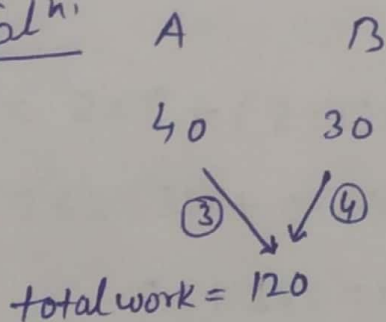 Solⁿ.
A B
40 30
③ ④
total work = 120